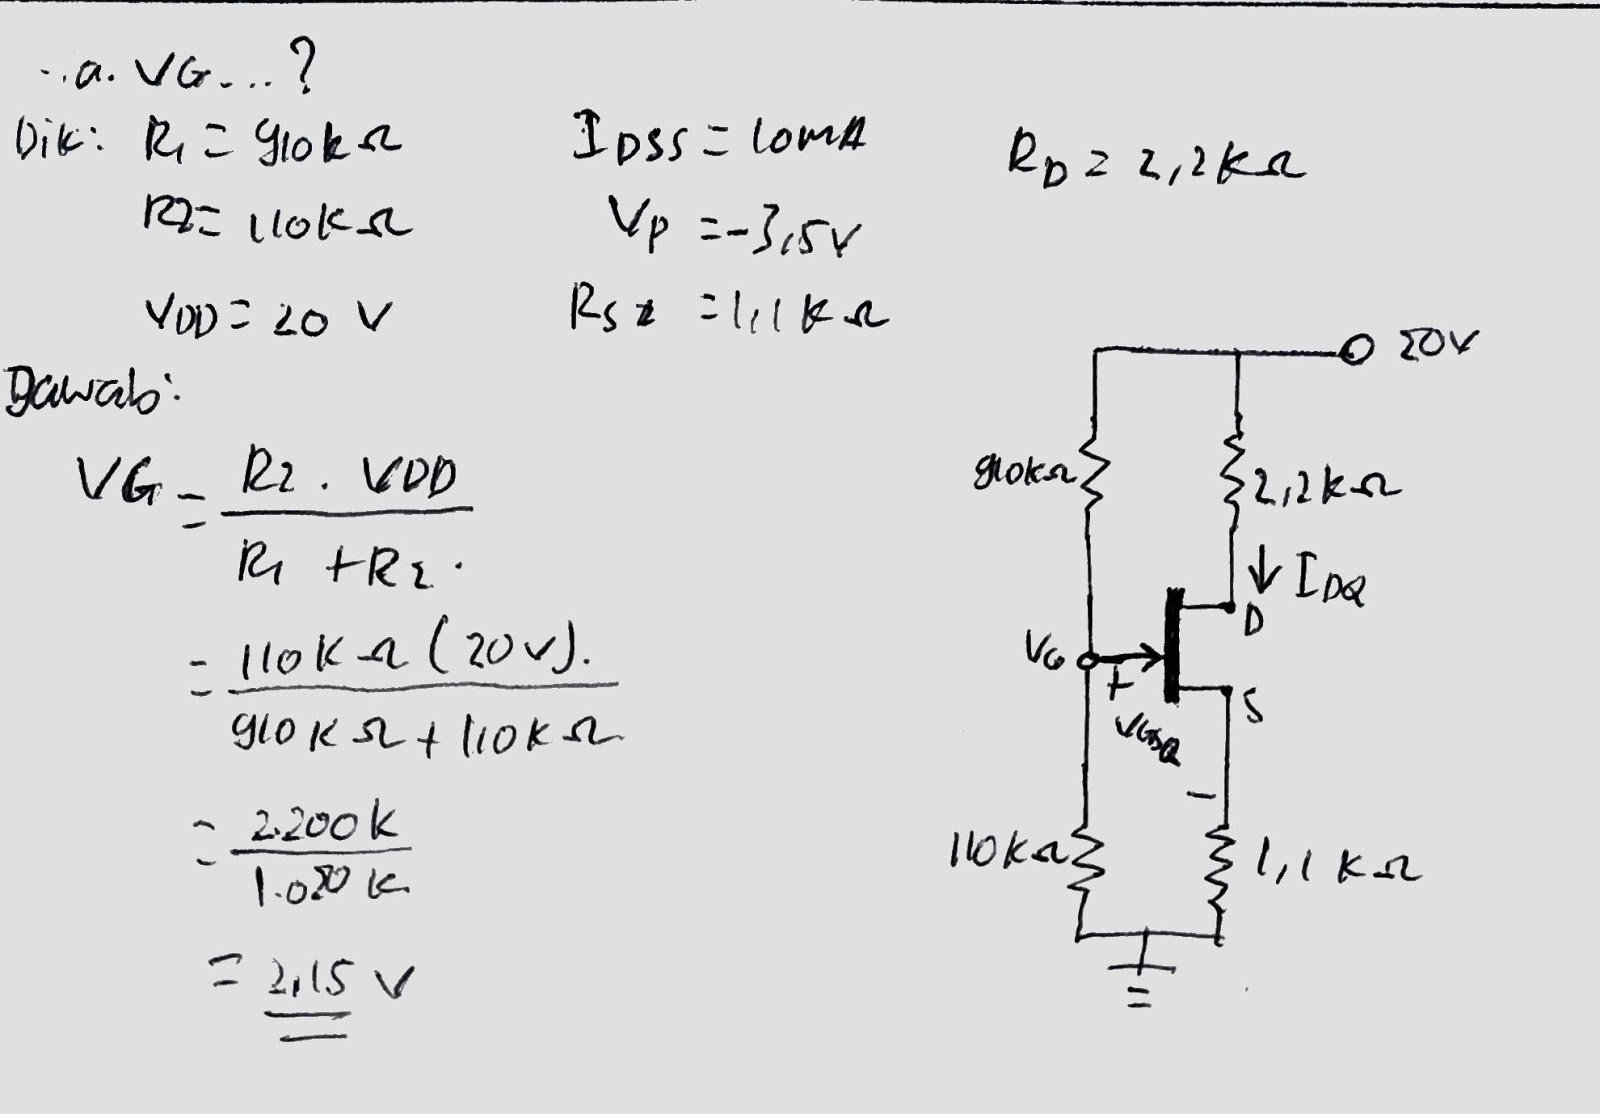 a. VG...?
Dik: R1 = 910kΩ IDSS = 10mA RD = 2,2kΩ
R2 = 110kΩ VP = -3,5V
VDD = 20 V RS = 1,1kΩ
Jawab:
VG = R2 . VDD
R1 + R2.
= 110kΩ (20v).
910kΩ + 110kΩ
= 2.200k
1.020k
= 2,15 V
20V
910kΩ
2,2kΩ
↓ IDQ
D
VG
+
S
VGSQ
-
110kΩ
1,1kΩ